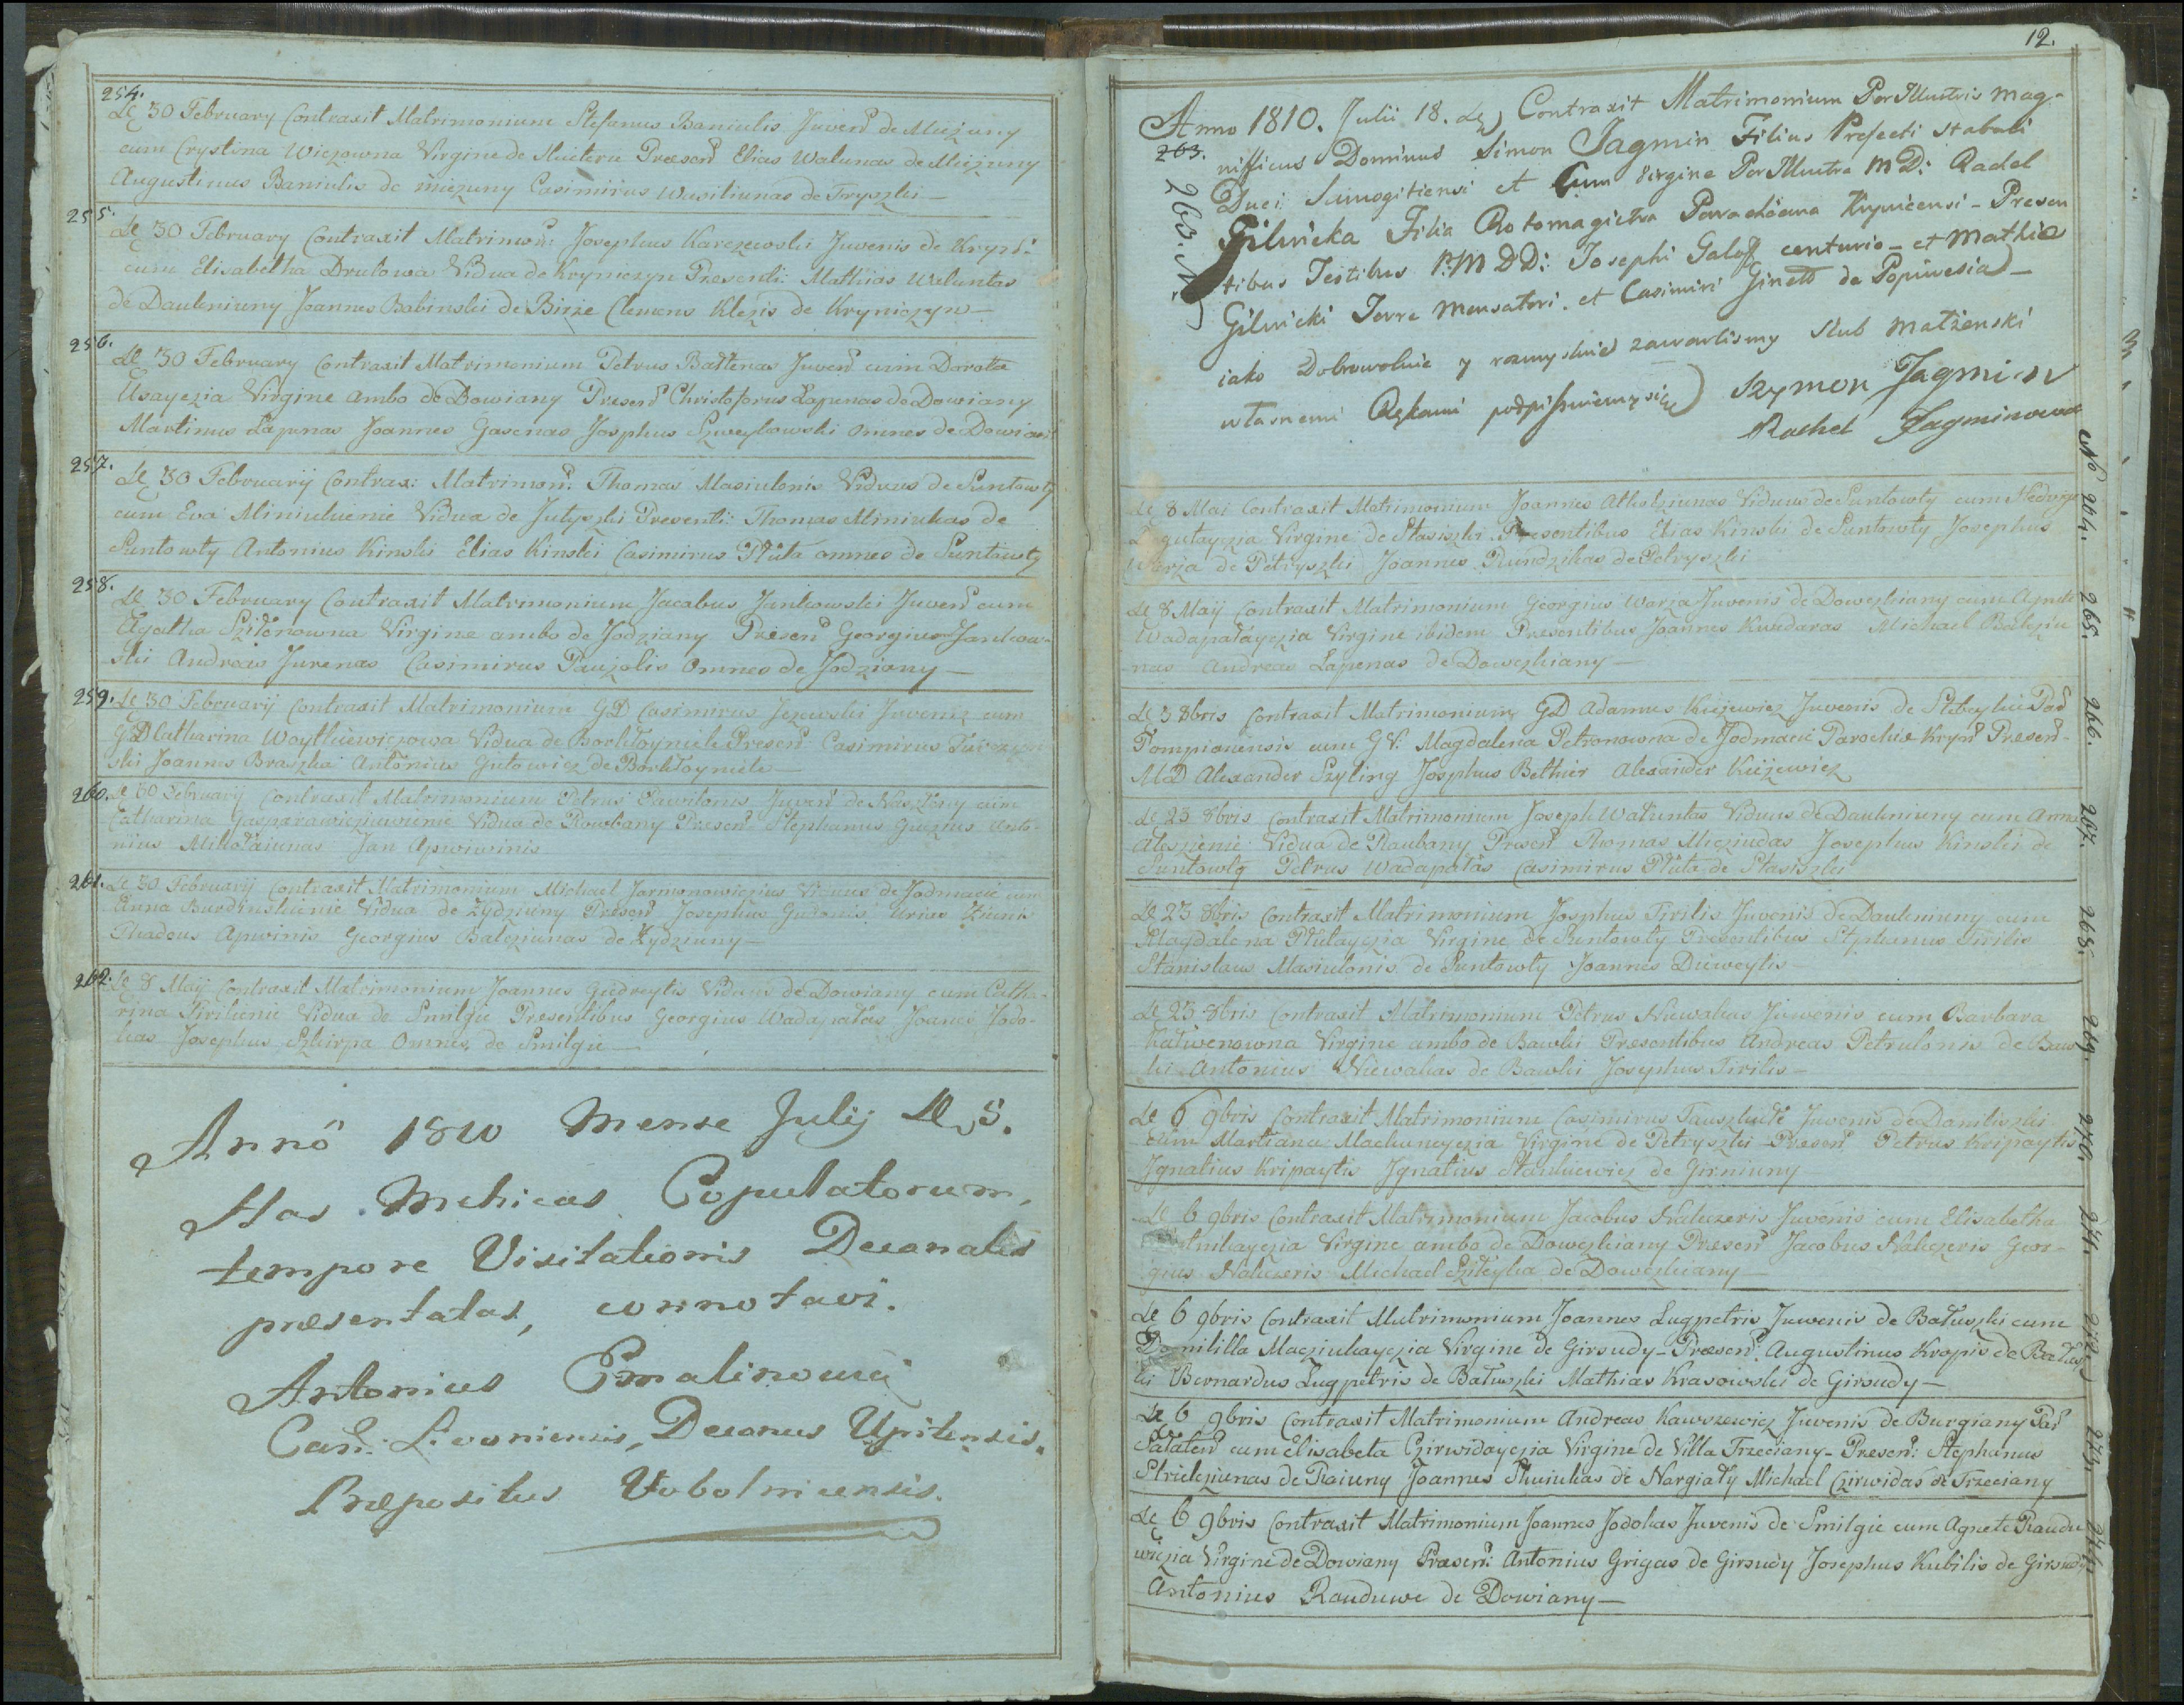 254.
De 30 February Contraxit Matrimonium Stefanus Baniulis Juven: de Miezuny
cum Crystina Wiczowna Virgine de Præsen: Elias Walunas de Miezuny
Augustinus Baniulis de miezuny Casimirus Wasiliunas de Tryszki
255.
De 30 February Contraxit Matrimon: Josephus Karczewski Juvenis de Kryn:
cum Elisabetha Drutowa Vidua de Krynczyn Presenti: Mathias Waluntas
de Daukniuny Joannes Babinski de Birże Clemens Klezis de Kryniczyn
256.
De 30 February Contraxit Matrimonium Petrus Bałtenas Juven: cum Dorota
Usayczia Virgine ambo de Dowiany Presen: Christoforus Łapenas de Dowiany
Martinus Łapenas Joannes Gasenas Josphus Szweykowski omnes de Dowiany
257.
De 30 February Contrax: Matrimon: Thomas Masiulonis Viduus de Puntowty
cum Eva Miniukienie Vidua de Jutyszki Presenti: Thomas Miniukas de
Puntowty Antonius Kinski Elias Kinski Casimirus Płuta omnes de Puntowty
258.
De 30 February Contraxit Matrimonium Jacobus Jankowski Juven: cum
Agatha Szitenowna Virgine ambo de Jodziany Presen: Georgius Jankow-
ski Andreas Jurenas Casimirus Paużolis Omnes de Jodziany
259.
De 30 February Contraxit Matrimonium GD Casimirus Jezewski Juveniz cum
GD Catharina Woytkiewiczowa Vidua de Borktoyniele Presen: Casimirus
ski Joannes Braszka Antonius Gutowicz de Borktoyniele
260.
De 30 February Contraxit Matrimonium Petrus Pawilonis Juven: de cum
Catharina Gasparawicziuwienie Vidua de Rowbany Presen: Stephanus Guzius Anto-
nius Millotaiunas Jan Apwiwinis
261.
De 30 February Contraxit Matrimonium Michael Jarmonowiczius Viduus de Jodmacie cum
Anna Burdinskienie Vidua de Zydziuny Presen: Josephus Gudonis
Thadeus Apwinis Georgius Balcziunas de Zydziuny
262.
De 8 Maij Contraxit Matrimonium Joannes Giedreytis Viduus de Dowiany cum Catha-
rina Tirilienie Vidua de Smilgie Presentibus Georgius Wadapałas Joanes Jodo-
kas Josephus Szkirpa Omnes de Smilgie
Annô 1810 Mense Julij De 5.
Has Methicas Copulatorum,
tempore Visitationis Decanalis
præsentatas, connotavi.
Antonius Ormalinowicz
Can: Livoniensis, Decanus Upitensis.
Præpositus Vobolnicensis.
12.
Anno 1810. Julii 18. De Contraxit Matrimonium PerIllustris Mag-
263.
nifficus Dominus Simon Jagmin Filius Prefecti Stabuli
Duci Samogitiensi et Cum Virgine PerIllustra MD: Rachel
263. N.
Gilwicka Filia Rotomagistra Parachiana Krynicensi - Presen
tibus Testibus P:M DD: Josephi Galof centurio - et Mathie
Gilwicki Terre Mensatori. et Casimiri Ginett de Popiwesia
iako Dobrowolnie y rozmyslnie zawarlismy slub Małżenski
własnemi Rękami podpisuiemy się Szymon Jagmin
Rachel Jagminowa
No 264.
De 8 Mai Contraxit Matrimonium Joannes Viduus de Puntowty cum Hedwige
Virgine de Stasiszki Presentibus Elias Kinski de Puntowty Josephus
Warza de Petryszki Joannes Rundzikas de Petryszki
265.
De 8 Maij Contraxit Matrimonium Georgius Warza Juvenis de Dowczkiany cum Agnete
Wadapałayczia Virgine ibidem Presentibus Joannes Kundaras Michael Balcziu
nas Andreas Łapenas de Dowczkiany
266.
De 3 8bris Contraxit Matrimonium GD Adamus Kiiżewicz Juvenis de Par
Pompianensis cum GV: Magdalena Petronowna de Jodmacie Parochiæ Kryn: Presen:
MD Alexander Szyling Josphus Bethier Alexander Kiiżewicz
267.
De 23 8bris Contraxit Matrimonium Joseph Waluntas Viduus de Daukniuny cum Anna
Vidua de Raubany Presen: Thomas Micziudas Josephus Kinski de
Puntowty Petrus Wadapałas Casimirus Płuta de Stasiszki
268.
De 23 8bris Contraxit Matrimonium Josphus Tirilis Juvenis de Daukniuny cum
Magdalena Płutayczia Virgine de Puntowty Presentibus Stphanus Tirilis
Stanislaus Masiulonis de Puntowty Joannes Dieweytis
269.
De 23 8bris Contraxit Matrimonium Petrus Niewakas Juwenis cum Barbara
Kaliwenowna Virgine ambo de Bawki Presentibus Andreas Petrulonis de Baw
ki Antonius Niewakas de Bawki Josephus Tirilis
270.
De 6 9bris Contraxit Matrimonium Casimirus Juvenis de Daniliszki
cum Martiana Machunayczia Virgine de Petryszki Presen: Petrus Kripaytis
Jgnatius Kripaytis Jgnatius Stankiewicz de Girniuny
271.
De 6 9bris Contraxit Matrimonium Jacobus Nakczeris Juvenis cum Elisabetha
Virgine ambo de Dowczkiany Presen: Jacobus Nakczeris Geor-
gius Nakczeris Michael Szileyka de Dowczkiany
272.
De 6 9bris Contraxit Matrimonium Joannes Lugpetris Juwenis de Batuszki cum
Domililla Macziukayczia Virgine de Girsudy - Præsen: Augustinus Kropis de Batusz
ki Bernardus Lugpetris de Batuszki Mathias Krasowski de Girsudy
273.
De 6 9bris Contraxit Matrimonium Andreas Kawszewicz Juvenis de Burgiany Par
Salaten: cum Elisabeta Czirwidayczia Virgine de Villa Trzeciany - Presen: Stephanus
Strielcziunas de Raiuny Joannes Skuiukas de Nargiały Michael Czirwidas de Trzeciany
274.
De 6 9bris Contraxit Matrimonium Joannes Jodokas Juvenis de Smilgie cum Agnete Raudu
wiczia Virgine de Dowiany Præsen: Antonius Grigas de Girsudy Josephus Kubilis de Girsudy
Antonius Rauduwe de Dowiany